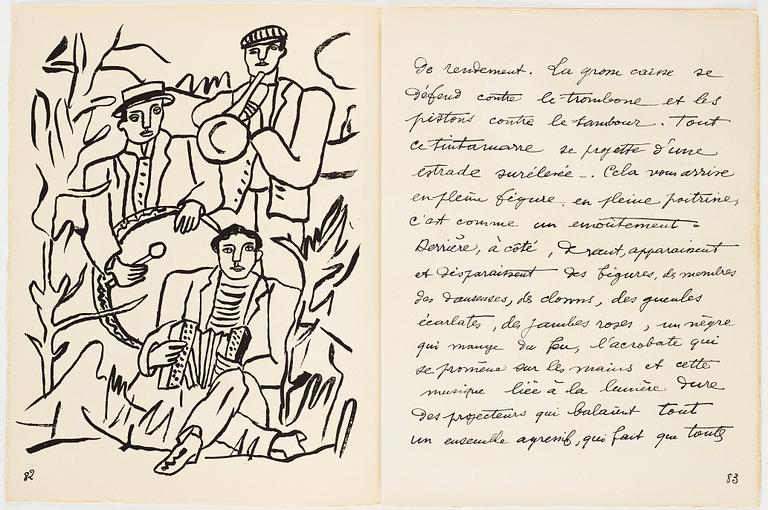 82
de rendement. La grosse caisse se
défend contre le trombone et les
pistons contre le tambour. Tout
ce tintamarre se projette d'une
estrade surélevée. Cela vous arrive
en pleine figure, en pleine poitrine,
c'est comme un envoûtement.
Derrière, à côté, devant, apparaissent
et disparaissent des figures, des membres
des danseuses, des clowns, des gueules
écarlates, des jambes roses, un nègre
qui mange du feu, l'acrobate qui
se promène sur les mains et cette
musique liée à la lumière dure
des projecteurs qui balaient tout
un ensemble agressif, qui fait que toute
83